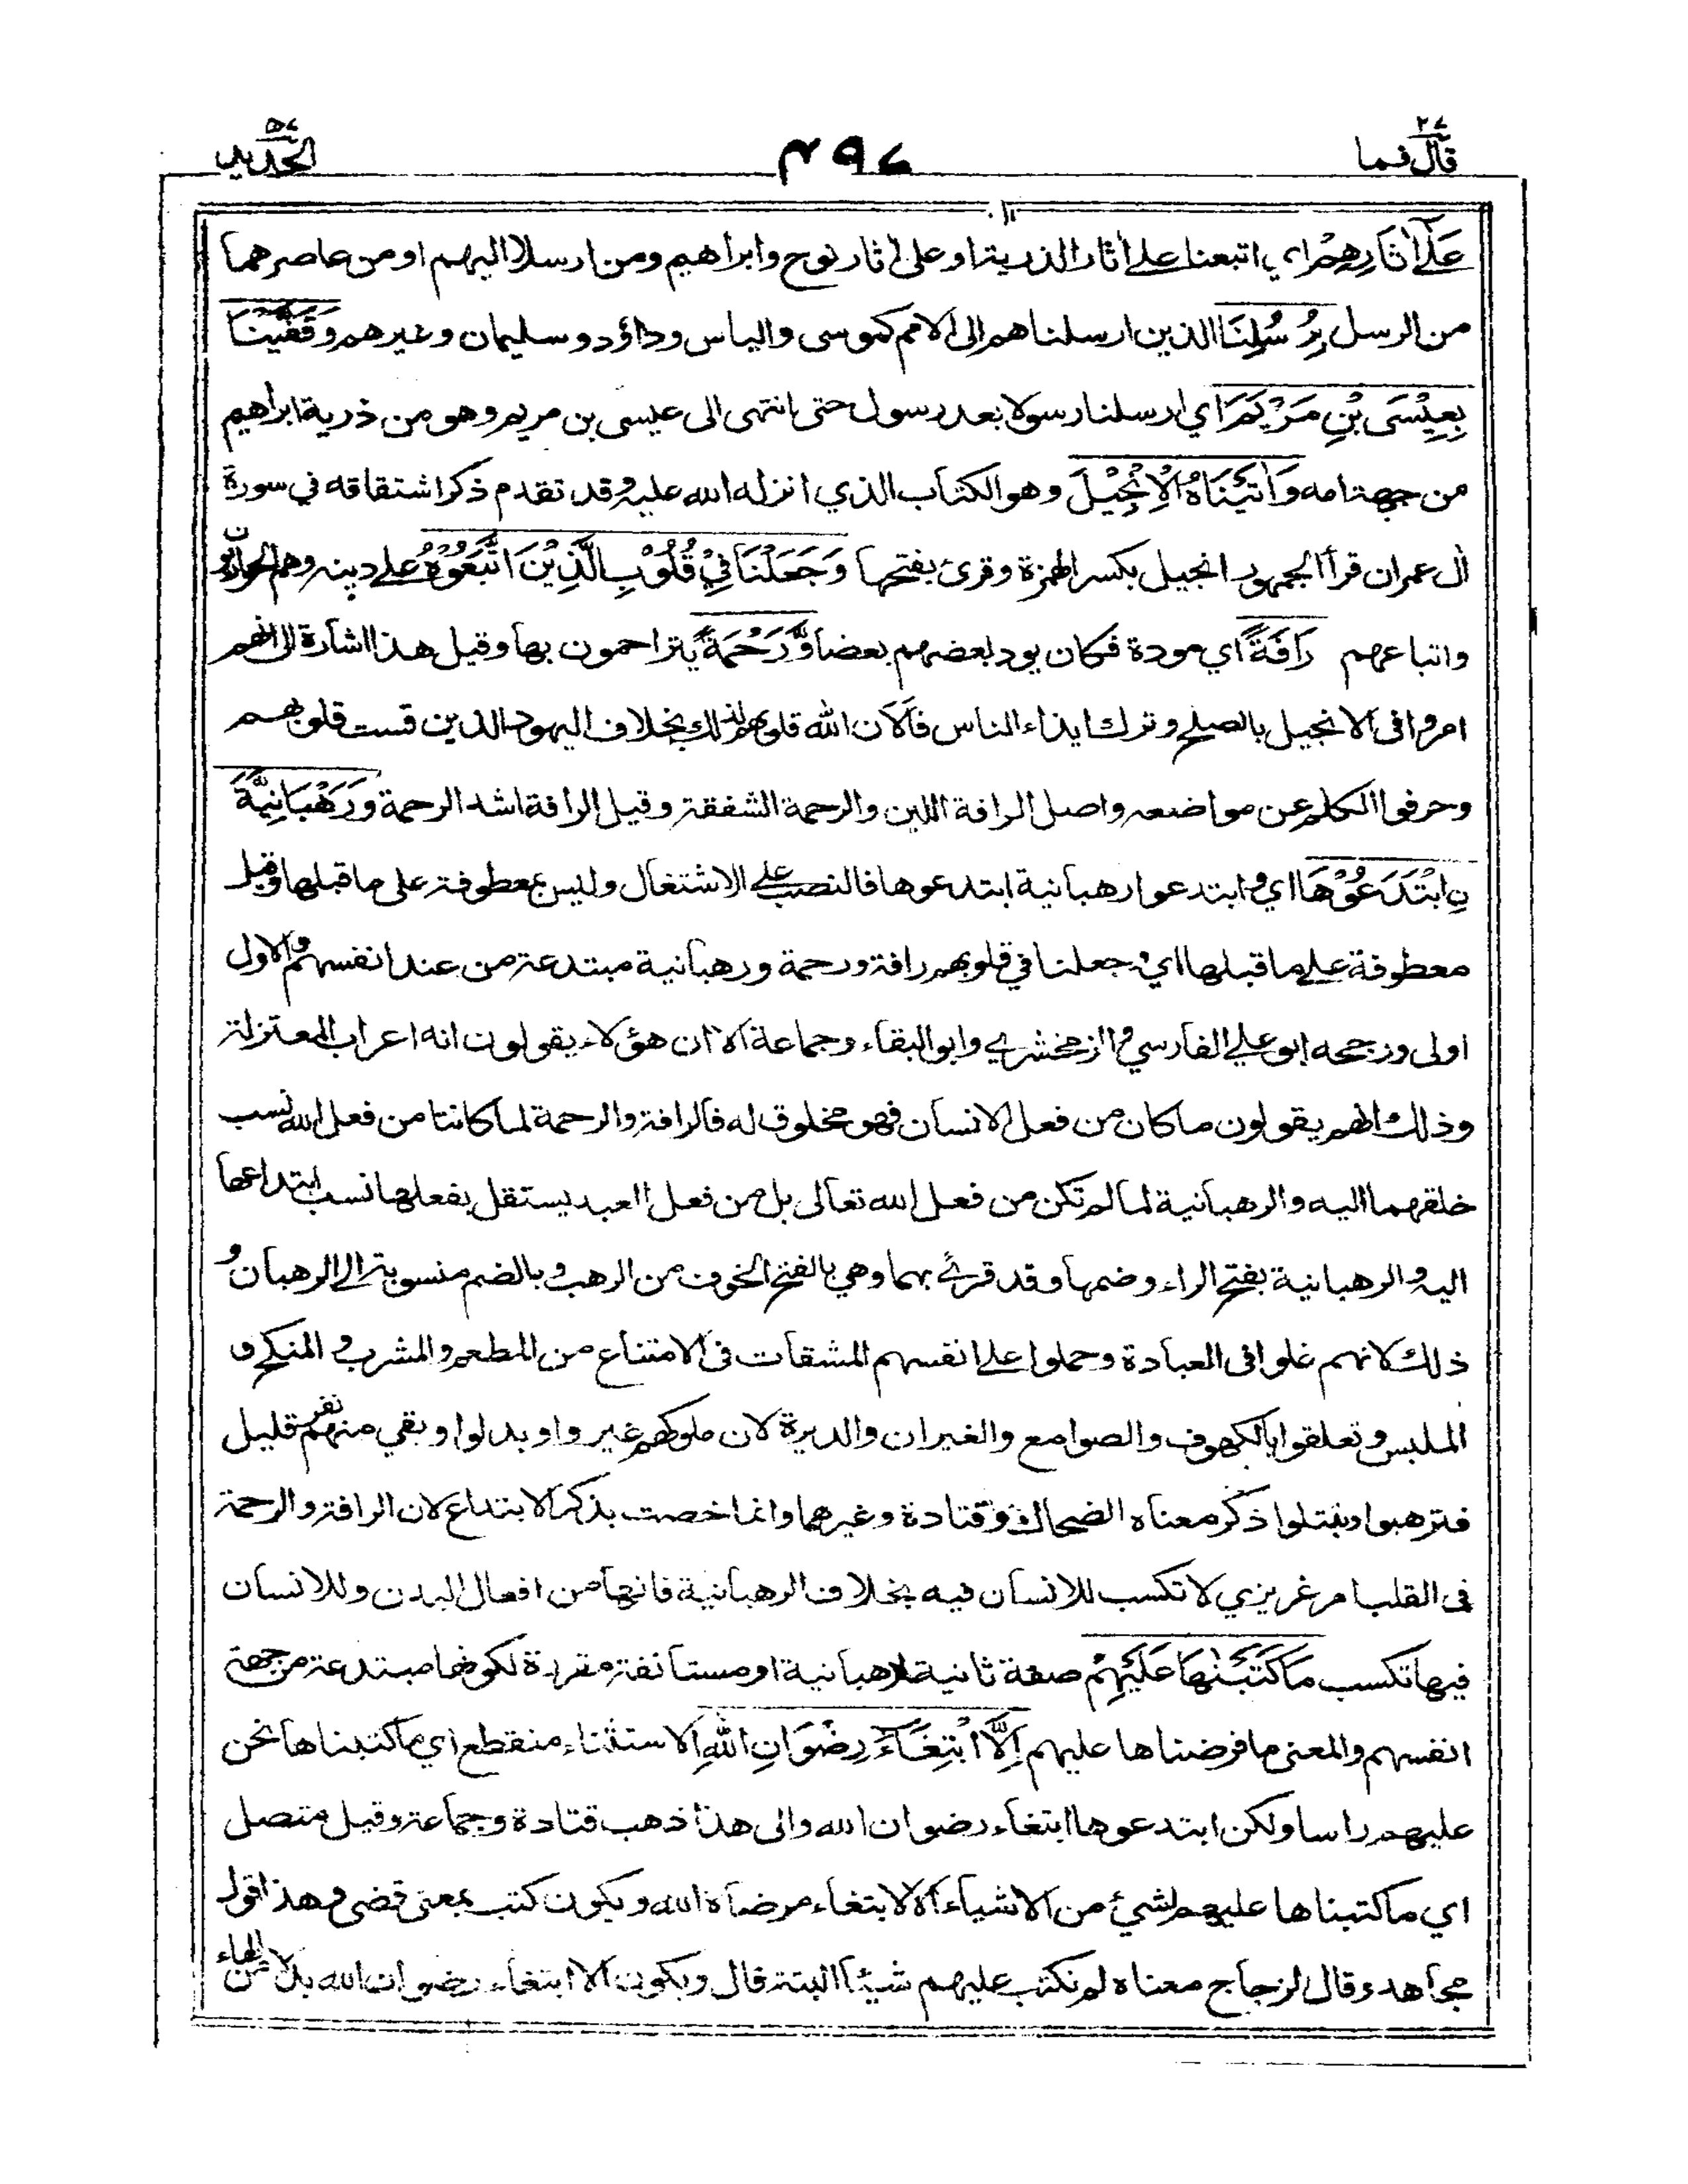 قال فما ٢٧
٢٩٧
الحديد ٥٧
عَلٰٓى اٰثَارِهِمْ اي اتبعنا على اٰثار الذرية او على اٰثار نوح وابراهيم ومن ارسلا اليهم او من عاصرهما
من الرسل بِرُسُلِنَا الذين ارسلناهم الى الامم كموسى والياس وداؤد وسليمان وغيرهم وَقَفَّيْنَا
بِعِيْسَى بْنِ مَرْيَمَ اي ارسلنا رسولا بعد رسول حتى انتهى الى عيسى بن مريم وهو من ذرية ابراهيم
من جهة امه وَاٰتَيْنَاهُ الْاِنْجِيْلَ وهو الكتاب الذي انزله الله عليه وقد تقدم ذكر اشتقاقه في سورة
اٰل عمران قرأ الجمهور انجيل بكسر الهمزة وقرئ بفتحها وَجَعَلْنَا فِيْ قُلُوْبِ الَّذِيْنَ اتَّبَعُوْهُ على دينه وهم الحواريون
واتباعهم رَافَةً اي مودة فكان يود بعضهم بعضا وَّرَحْمَةً يتراحمون بها وقيل هذا اشارة الى انهم
امروا فى الانجيل بالصلح وترك ايذاء الناس فألان الله قلوبهم لذلك بخلاف اليهود الذين قست قلوبهم
وحرفوا الكلم عن مواضعه واصل الرافة اللين والرحمة الشفقة وقيل الرافة اشد الرحمة وَرَهْبَانِيَّةَ
نِ ابْتَدَعُوْهَا اي وابتدعوا رهبانية ابتدعوها فالنصب على الاشتغال وليس بمعطوفة على ما قبلها وقيل
معطوفة على ما قبلها اي وجعلنا في قلوبهم رافة ورحمة ورهبانية مبتدعة من عند انفسهم والاول
اولى ورجحه ابو علي الفارسي والزمخشري وابو البقاء وجماعة الا ان هؤلاء يقولون انه اعراب المعتزلة
وذلك انهم يقولون ما كان من فعل الانسان فهو مخلوق له فالرافة والرحمة لما كانتا من فعل الله نسب
خلقهما اليه والرهبانية لما لم تكن من فعل الله تعالى بل من فعل العبد يستقل بفعلها نسب ابتداعها
اليه والرهبانية بفتح الراء وضمها وقد قرئ بهما وهي بالفتح الخوف من الرهب وبالضم منسوبة الى الرهبان و
ذلك لانهم غلوا فى العبادة وحملوا على انفسهم المشقات فى الامتناع من المطعم والمشرب والمنكح و
الملبس وتعلقوا بالكهوف والصوامع والغيران والديرة لان ملوكهم غيروا وبدلوا وبقي منهم نفر قليل
فترهبوا وتبتلوا ذكر معناه الضحاك وقتادة وغيرهما وانما خصت بذكر الابتداع لان الرافة والرحمة
فى القلب امر غريزي لا تكسب للانسان فيه بخلاف الرهبانية فانها من افعال البدن وللانسان
فيها تكسب مَا كَتَبْنٰهَا عَلَيْهِمْ صفة ثانية لرهبانية او مستأنفة مقررة لكونها مبتدعة من جهة
انفسهم والمعنى ما فرضناها عليهم اِلَّا ابْتِغَآءَ رِضْوَانِ اللهِ الاستثناء منقطع اي ما كتبناها نحن
عليهم راسا ولكن ابتدعوها ابتغاء رضوان الله والى هذا ذهب قتادة وجماعة وقيل متصل
اي ما كتبناها عليهم لشيئ من الاشياء الا لابتغاء مرضاة الله ويكون كتب بمعنى قضى وهذا قول
مجاهد وقال الزجاج معناه لم نكتب عليهم شيئا البتة قال ويكون الا ابتغاء رضوان الله بدلا من الهاء